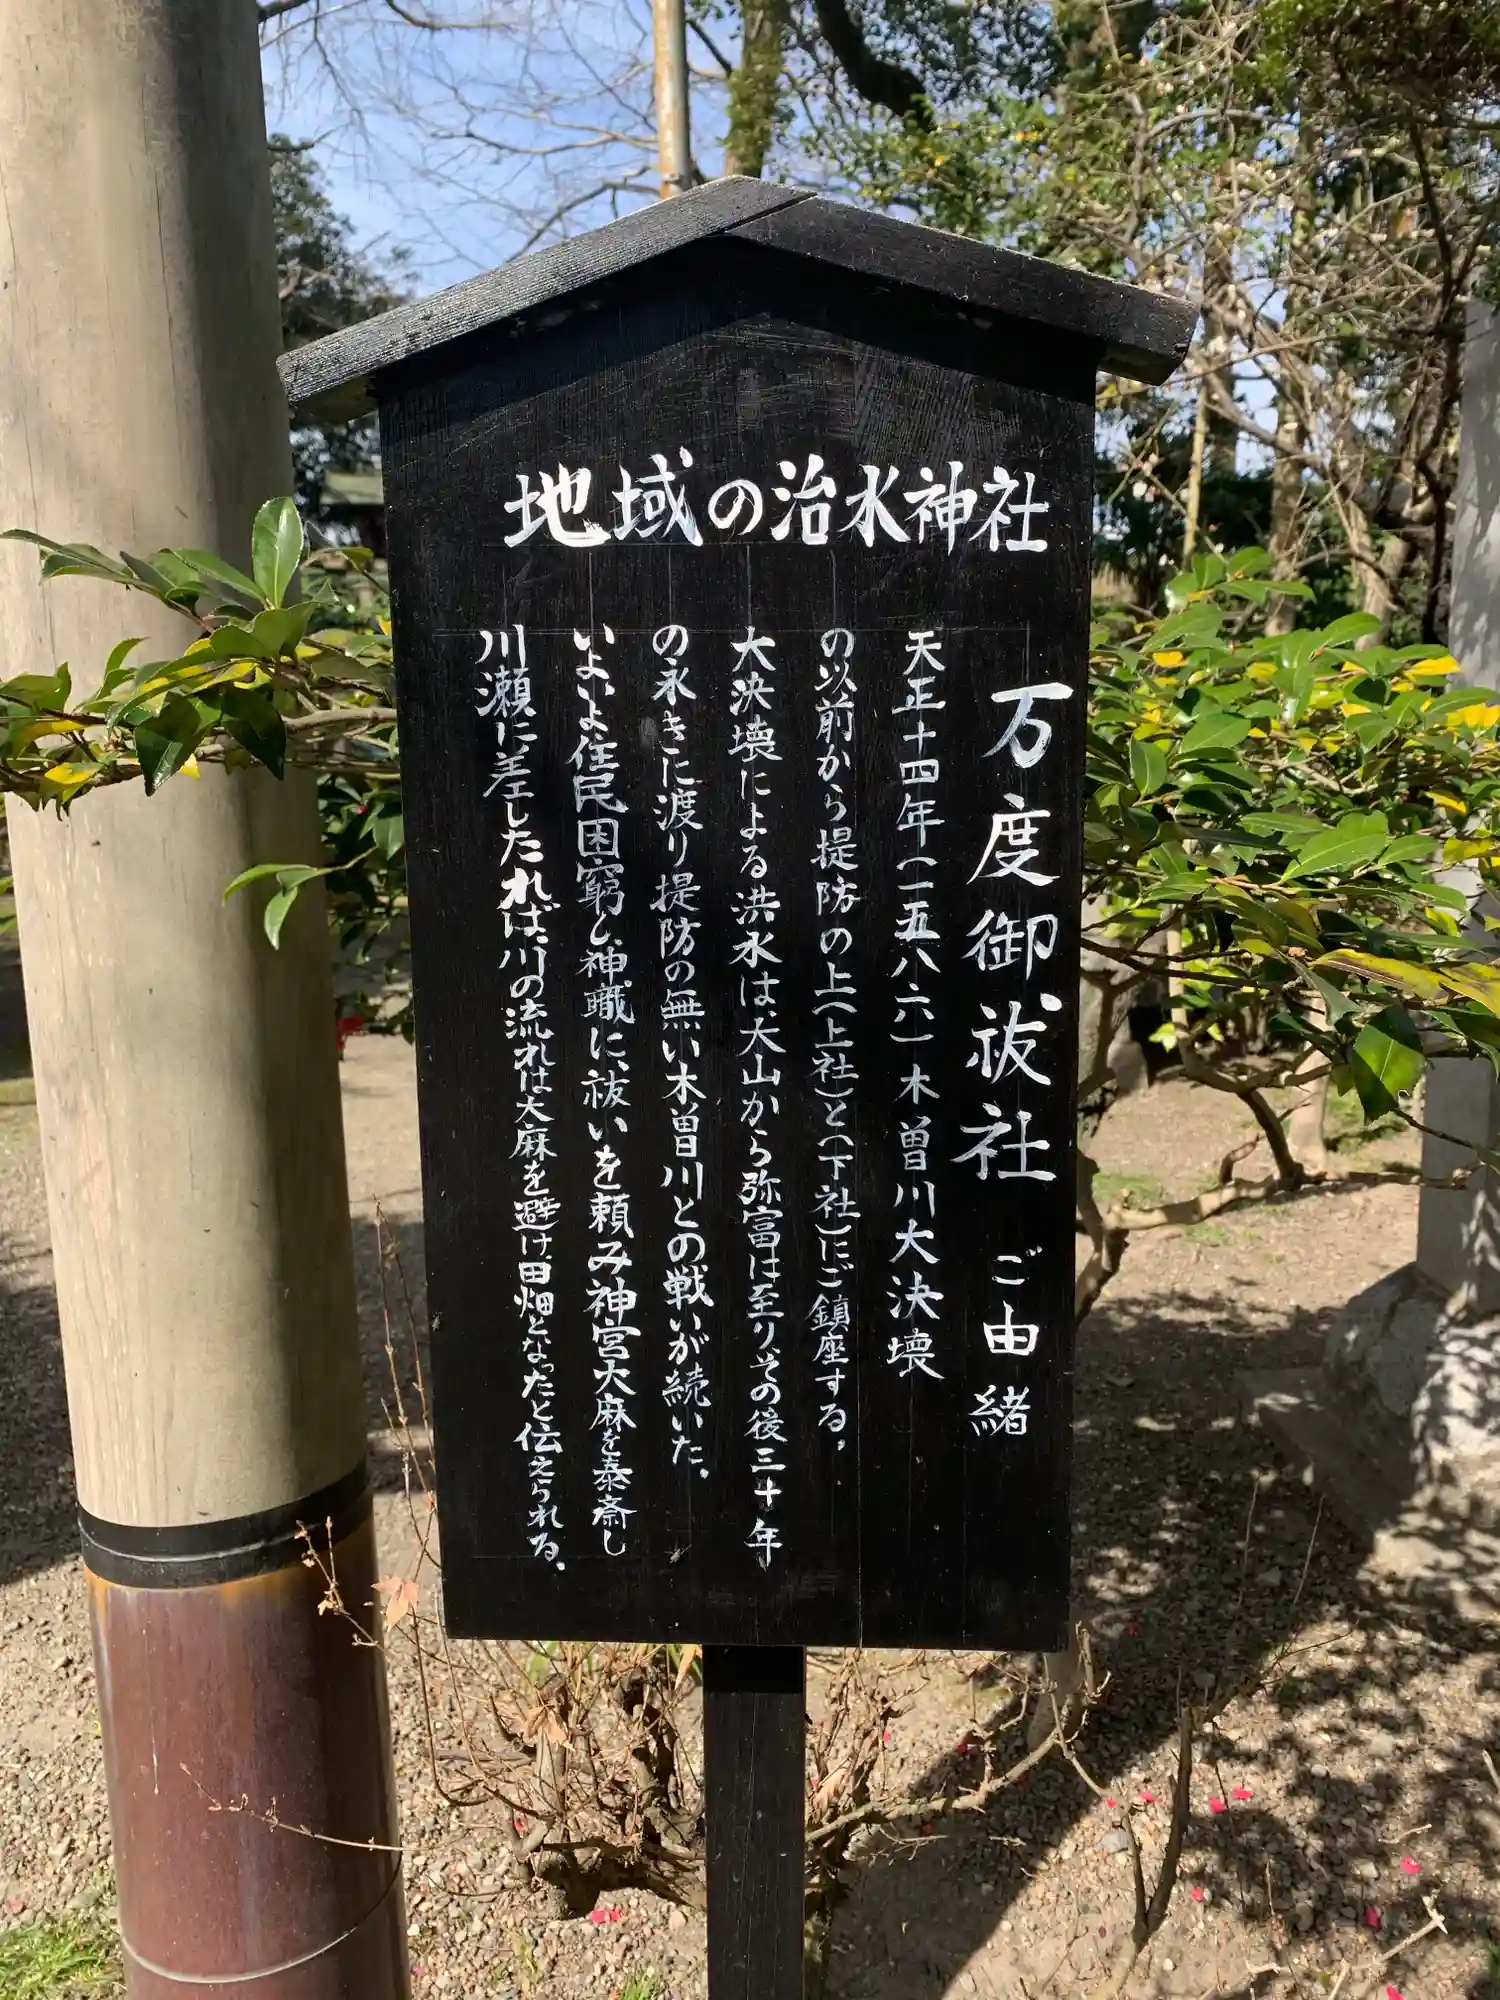 地域の治水神社
万度御祓社 ご由緒
天正十四年(一五八六)木曽川大決壊
の以前から堤防の上(上社)と(下社)にご鎮座する。
大決壊による洪水は、大山から弥富は至りその後三十年
の永きに渡り堤防の無い木曽川との戦いが続いた。
いよいよ住民困窮し、神職に、祓いを頼み神宮大麻を泰斎し
川瀬に差したれば、川の流れは大麻を避け、田畑となったと伝えられる。